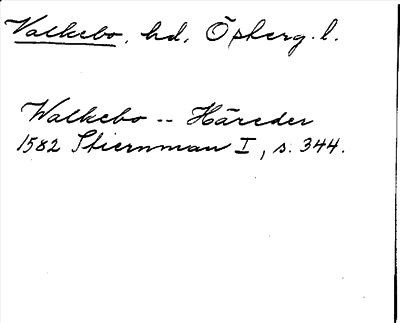 Valkebo, hd, Österg. l.
Walkebo -- Häreder
1582 Stiernman I, s. 344.